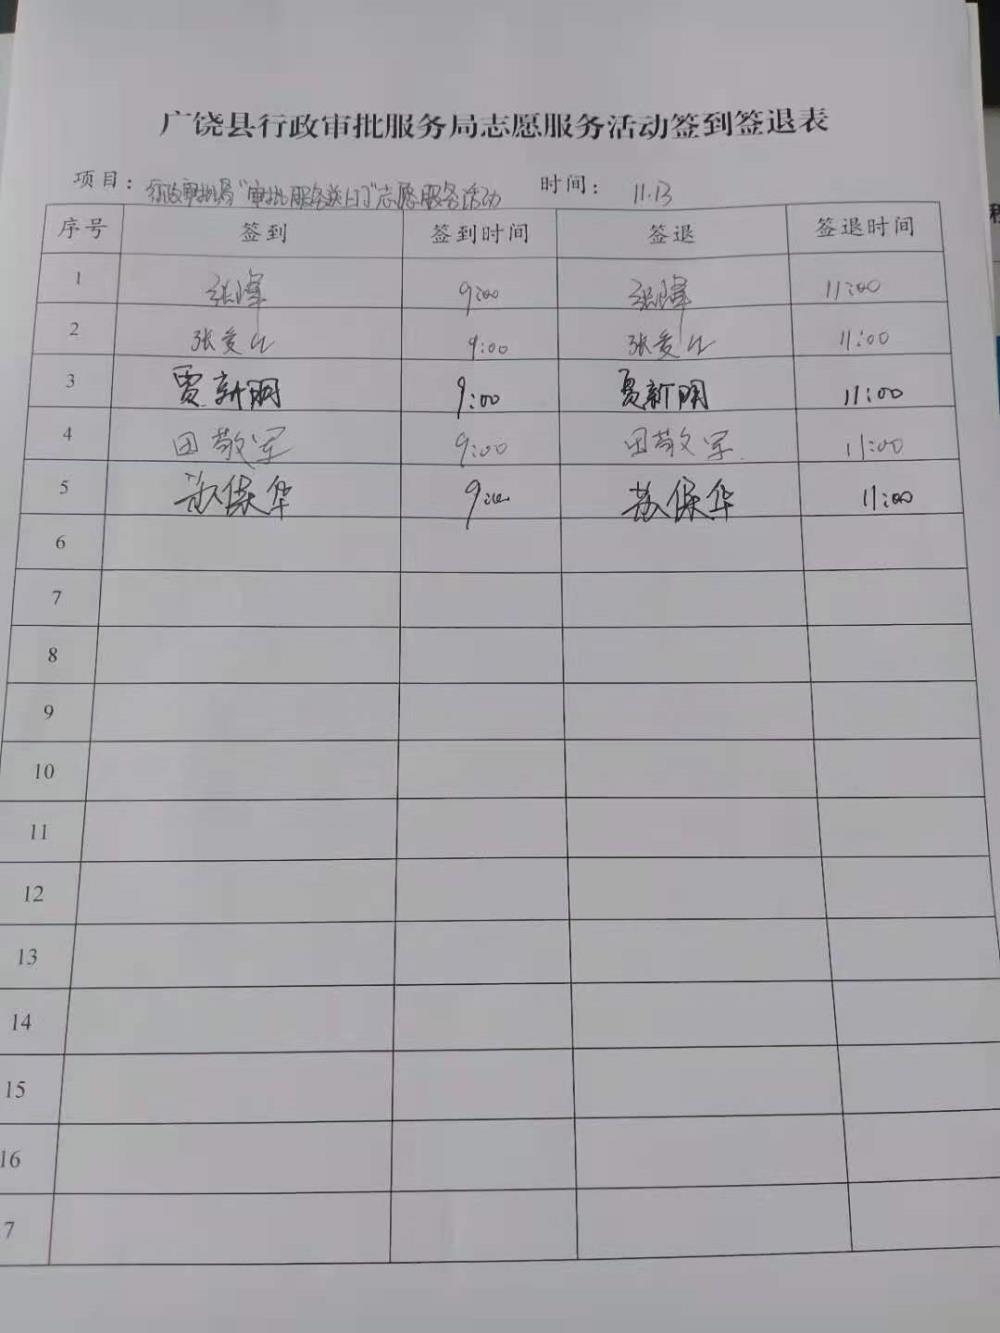 广饶县行政审批服务局志愿服务活动签到签退表
项目：行政审批局“审批服务送上门”志愿服务活动 时间：11.13
序号 签到 签到时间 签退 签退时间
1 张峰 9:00 张峰 11:00
2 张爱 9:00 张爱 11:00
3 贾新明 9:00 贾新明 11:00
4 田敬军 9:00 田敬军 11:00
5 苏保华 9:00 苏保华 11:00
6
7
8
9
10
11
12
13
14
15
16
7